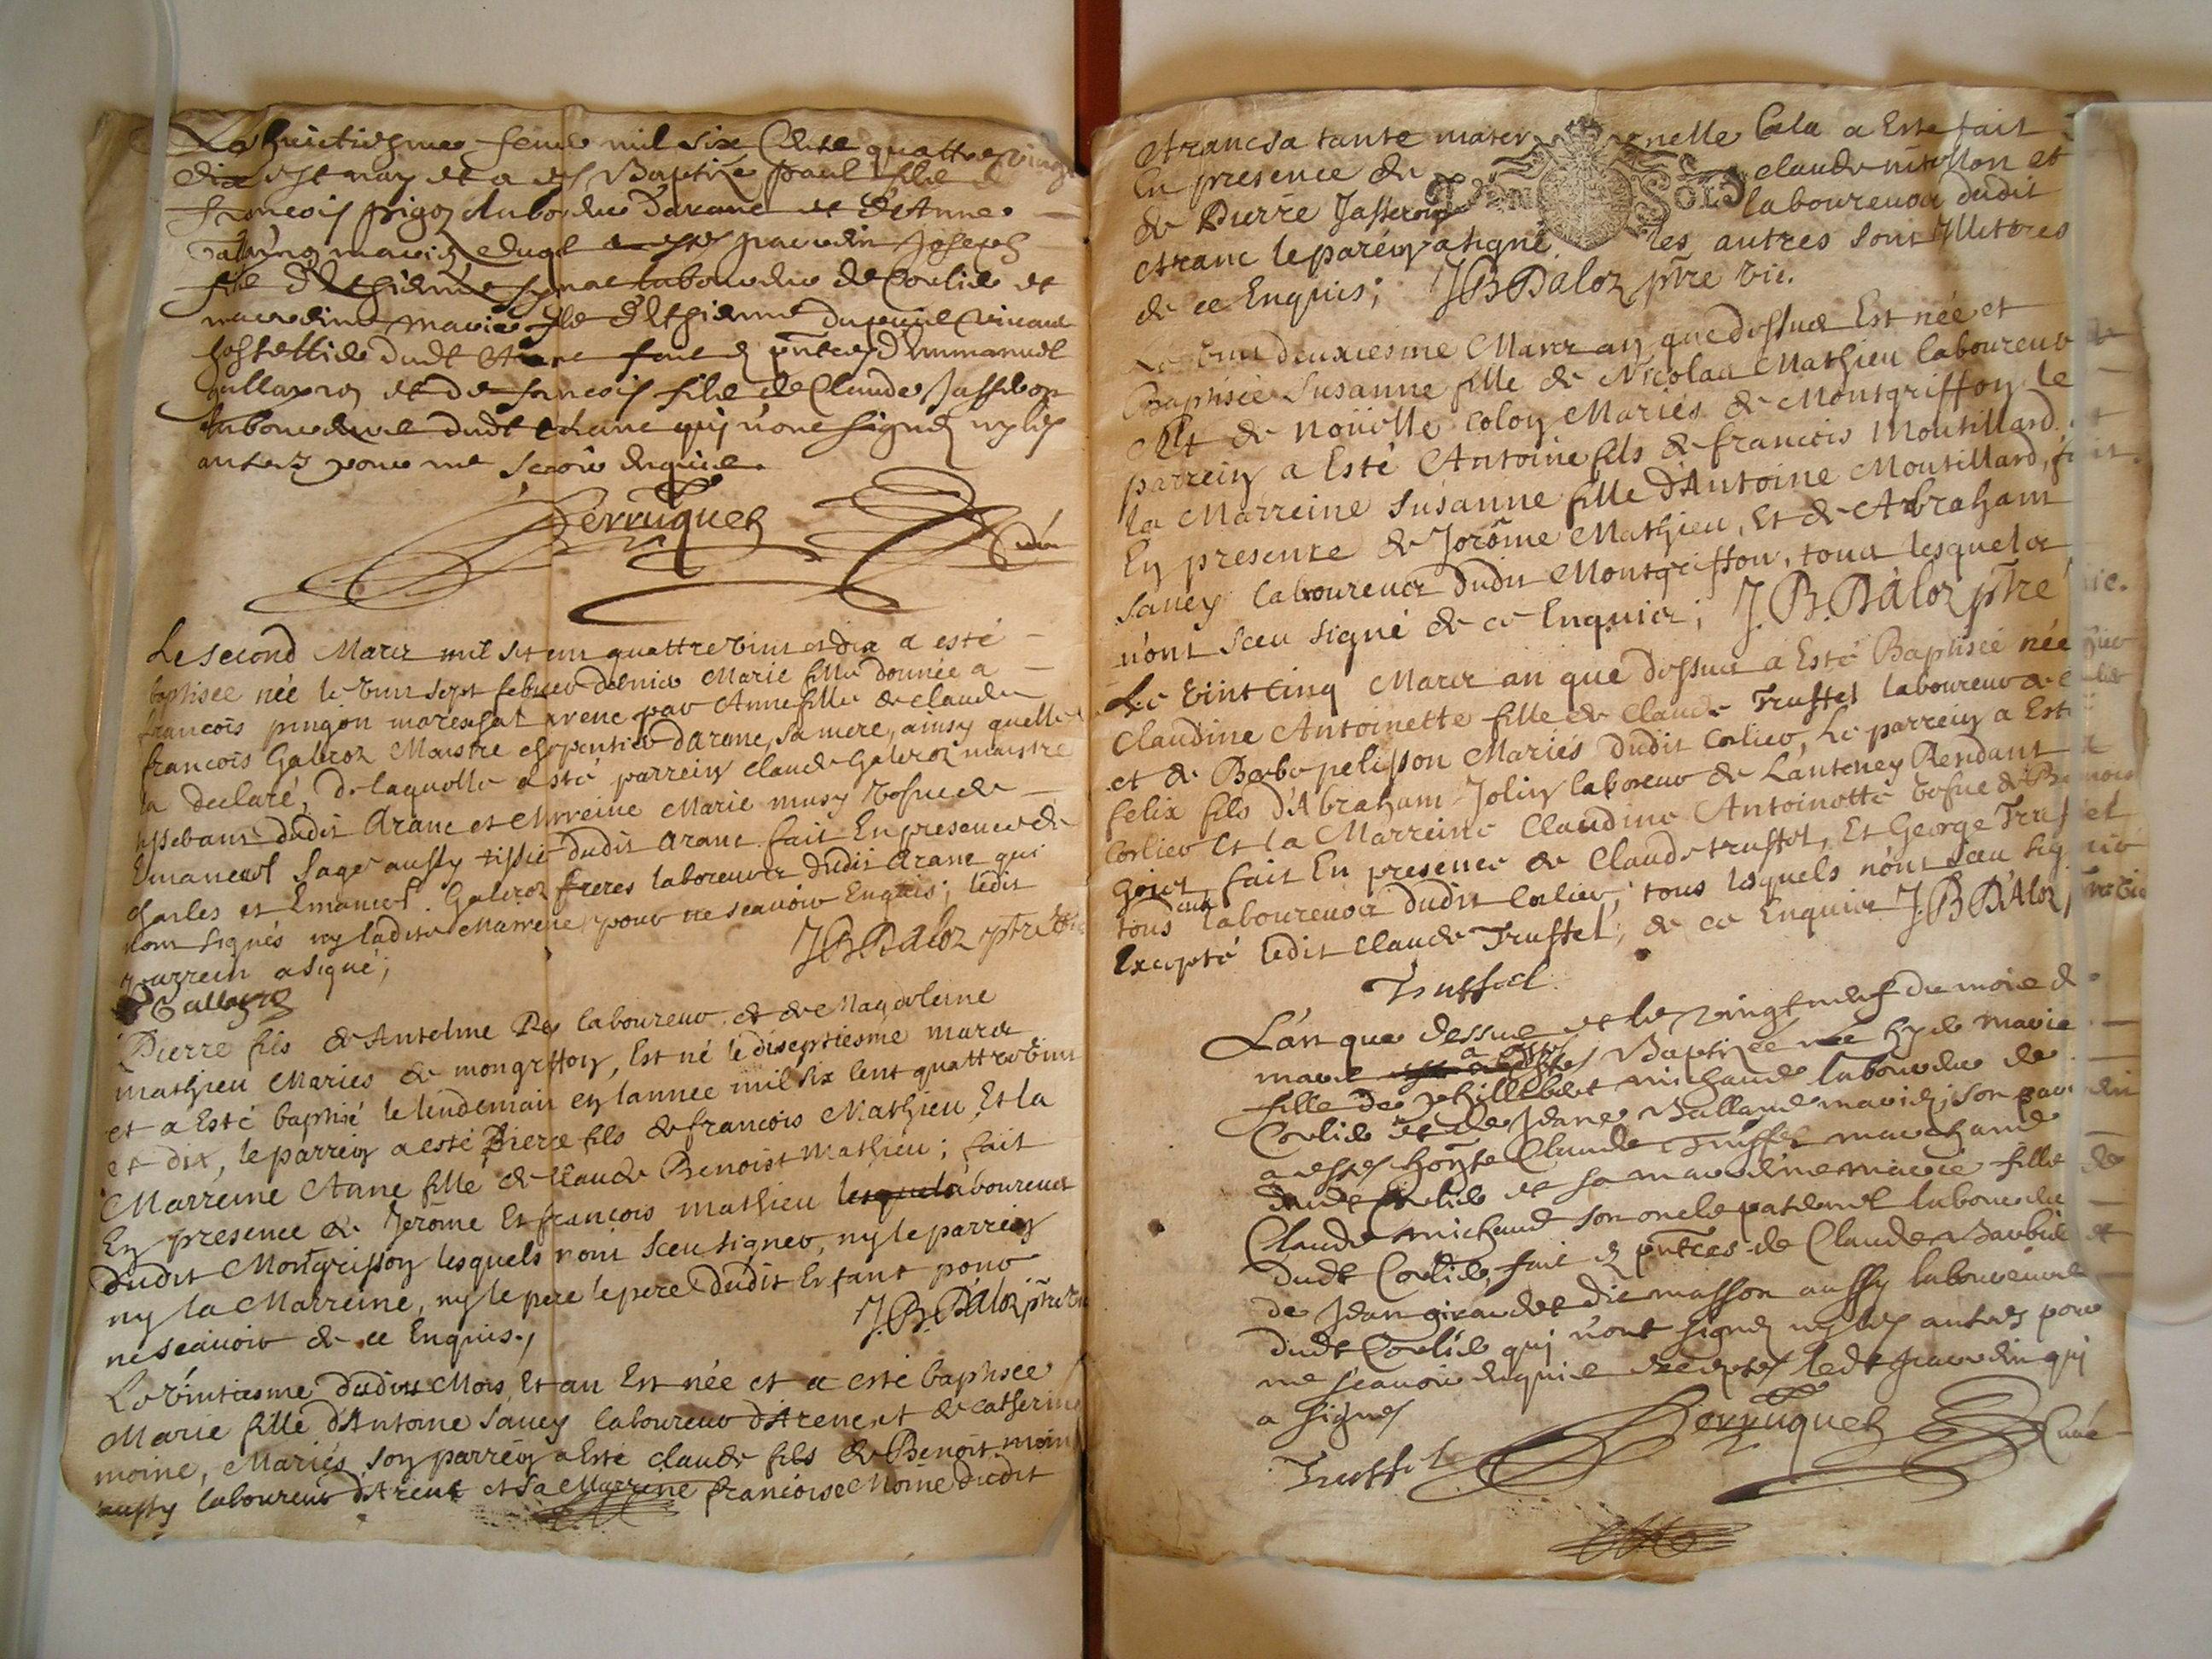 Le huictiesme feuur mil six Cent quattre vingt
dix est nay et a esté Baptizé paul filz de
francois d'arane et d'Anne
mariez duql a esté parrin Joseph
filz d'Ethienne laboureur de Corlier et
marrdine Marie fille d'Ethienne
dudt Arane fait en pntces d'Emmanuel
gallayroz et de francois filz de Claude Jasseron
laboureurs dudt Arane quj n'ont signez ny les
autres pour ne scavoir enquis.
Perruquet
Curé
Le second Mars mil six cen quattrevint et dix a esté
baptisée née le vint sept febvrier dernier Marie fille donnée a
francois pingon marexhal avenc par Anne fille de claude
francois Galleroz Maistre chapentier d'Arane, sa mere, ainsy quelle
la declaré, de laquelle a esté parrein Claude Galleroz maistre
dudit Arane et Marreine Marie musy vefue de
Emanuel Sage aussy tissier dudit Arane fait En presence de
charles et Emanuel Galleroz freres laboureurs dudit Arane qui
n'ont signés ny ladite Marreine pour ne scavoir Enquis; ledit
parrein a signé;
JB Daloz ptre vic
Pierre fils de Antelme Rey laboureur et de Magdeleine
mathieu Mariés de mongriffon, Est né le diseptiesme mars
et a Esté baptisé le lendemain en lannée mil six cent quattrevint
et dix, le parrein a esté Pierre fils de francois Mathieu, Et la
Marreine Anne fille de Claude Benoist Mathieu; fait
En presence de Jerôme Et francois mathieu laboureurs
dudit Montgriffon lesquels nont sceu signer, ny le parrein
ny la Marreine, ny le pere le pere dudit Enfant pour
ne scavoir de ce Enquis.,
J.B. Daloz ptre vic
Le vintiesme dudit Mois Et an Est née et a esté baptisée
Marie fille d'Antoine Saney laboureur d'Arenc et de catherine
moine, Mariés, son parrein a Esté claude fils de Benoit moine
aussy laboureur d'Arenc et sa Marrine francoise Moine dudit
Aranc sa tante maternelle Cela a Esté fait
En presence de claude nitollon et
de Pierre Jasseron laboureurs dudit
Aranc le parein a signé les autres sont Illitres
de ce Enquis; JB Daloz ptre vic.
Le vint deuxiesme Mars an que dessus Est née et
Baptisée Susanne fille de Nicolas Mathieu laboureur
Et de noüelle Colon Mariés de Montgriffon le
parrein a Esté Antoine fils de francois Moutillard
la Marreine Susanne fille d'Antoine Moutillard, fait
En presence de Jerôme Mathieu, Et de Abraham
Saney laboureurs dudit Montgriffon, tous lesquels
n'ont sceu signé de ce Enquis; J.B. Daloz ptre vic.
Le vint cinq Mars an que dessus a Esté Baptisée née
Claudine Antoinette fille de Claude Truffet laboureur de
et de Beebe pelisson Mariés dudit Corlier, Le parrein a Esté
felix fils d'Abraham Jolin laboreur de Lanteney Rendant a
Corlier et la Marreine Claudine Antoinette vefue de Benoist
Goiet, fait En presence de Claude truffet, Et George Truffet
tous deux laboureurs dudit Corlier; tous lesquels n'ont sceu signé
Excepté ledit Claude Truffet; de ce Enquis J.B Daloz ptre vic
Truffet
L'an que dessus et le vingt neuf du mois de
mars a esté Baptizée née hyer marie
fille de philibert michaud laboureur de
Corlier et de Jeane Balland mariez; son parrdin
a esté honste Claude Truffet marchand
dudt Corlier et sa marrdine marie fille de
Claude michaud son oncle paternel laboureur
dudt Corlier, fait en pntces de Claude Barbier et
de Jean girardet die masson aussy laboureurs
dudt Corlier quj n'ont signez ny les autres pour
ne scavoir enquis exceptez ledt parrdin quj
a signez
Truffet
Perruquet
Curé